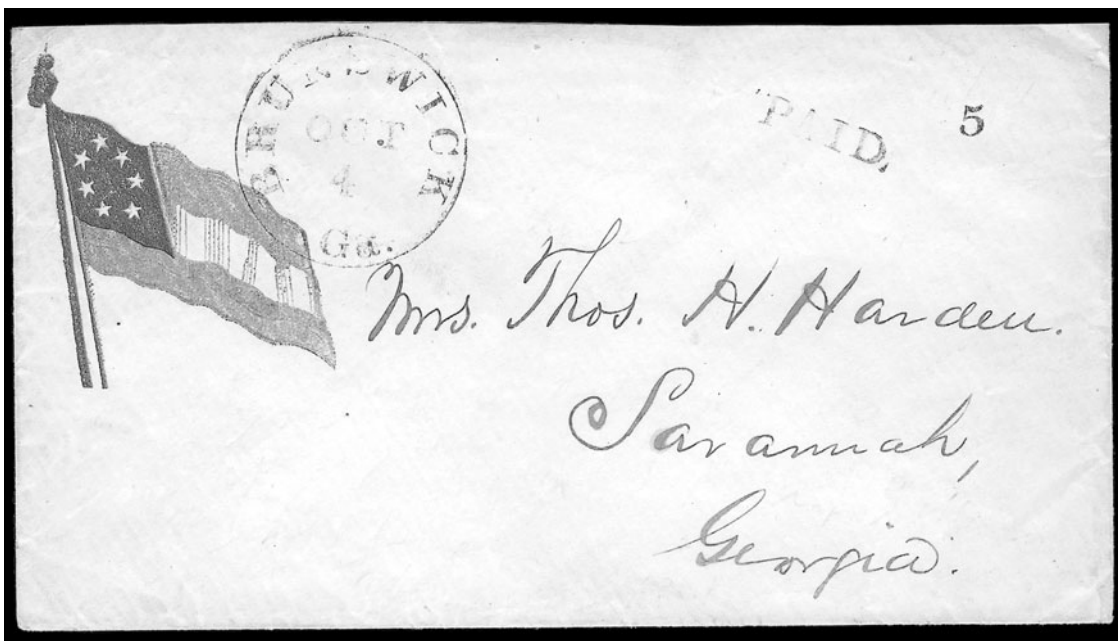 BRUNSWICK
OCT
4
Ga.
PAID,
5
Mrs. Thos. H. Harden.
Savannah,
Georgia.